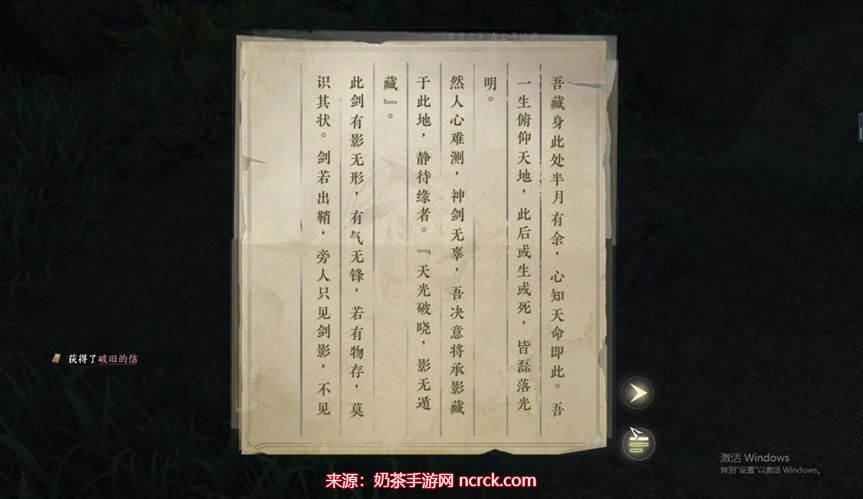 吾藏身此处半月有余，心知天命即此。吾
一生俯仰天地，此后或生或死，皆磊落光
明。
然人心难测，神剑无辜，吾决意将承影藏
于此地，静待缘者。『天光破晓，影无遁
藏』。
此剑有影无形，有气无锋，若有物存，莫
识其状。剑若出鞘，旁人只见剑影，不见
获得了破旧的信
激活 Windows
转到"设置"以激活 Windows。
来源：奶茶手游网 ncrck.com